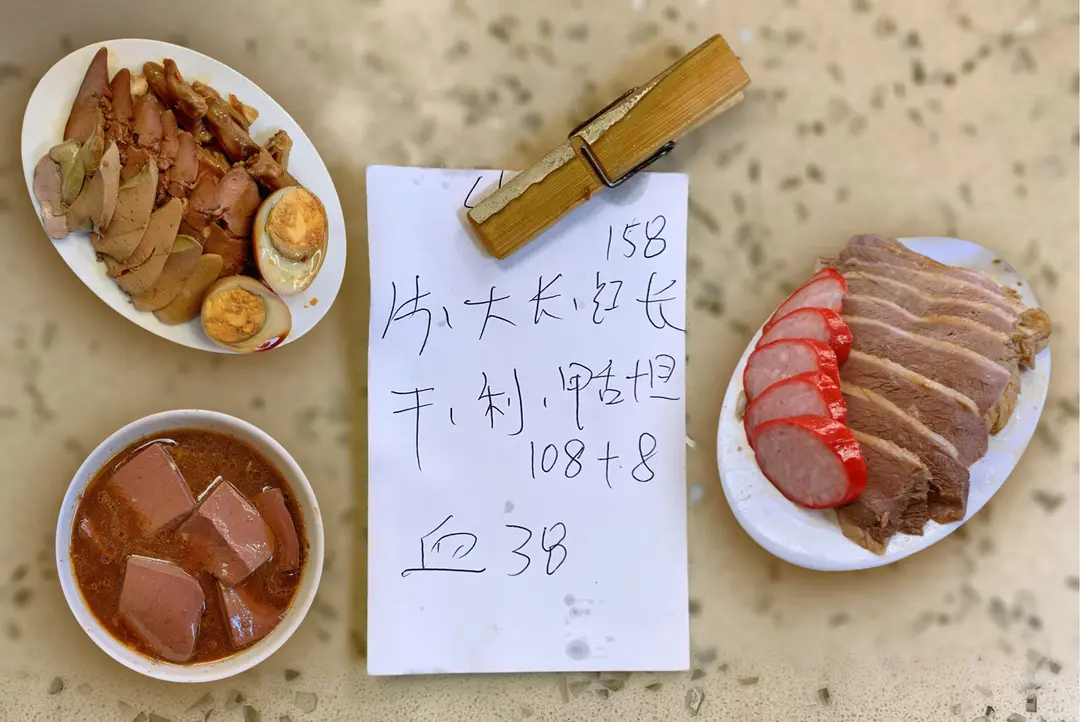 158
片、大长、红长
干、利、甲舌+旦
108+8
血38